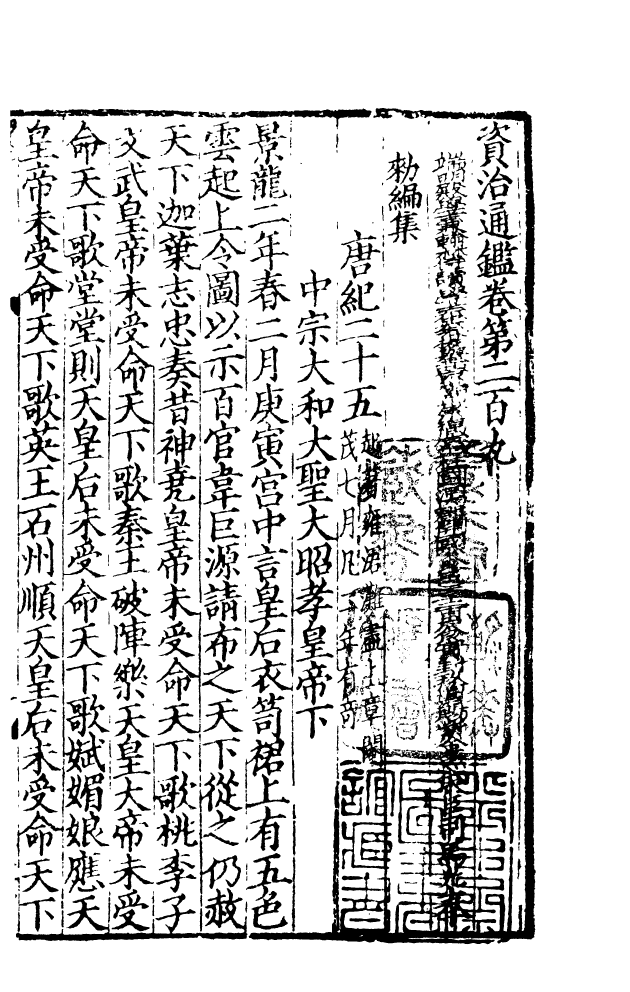 資治通鑑卷第二百九
勑編集
唐紀二十五 起著雍涒灘盡上章閹
茂七月凡二年有奇
中宗大和大聖大昭孝皇帝下
景龍二年春二月庚寅宮中言皇后衣笥裙上有五色
雲起上令圖以示百官韋巨源請布之天下從之仍赦
天下迦葉志忠奏昔神堯皇帝未受命天下歌桃李子
文武皇帝未受命天下歌秦王破陣樂天皇大帝未受
命天下歌堂堂則天皇后未受命天下歌娬媚娘應天
皇帝未受命天下歌英王石州順天皇后未受命天下